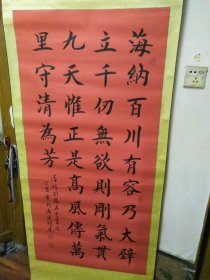 海納百川有容乃大
立千仞無欲則剛氣貫
九天惟正是高風傳萬
里守清為芳